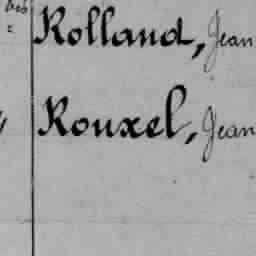 Rolland, Jean
Rouxel, Jean